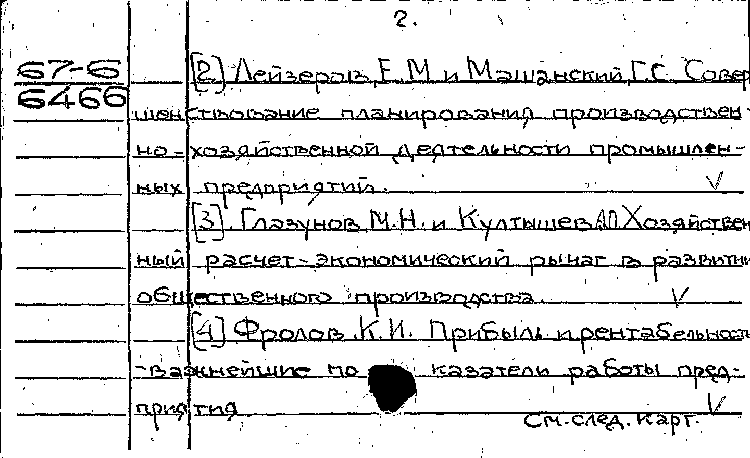 2.
67-6
6466
[2] Лейзеров, Е.М и Машанский, Г.С. Совер
шенствование планирования производствен-
но-хозяйственной деятельности промышлен-
ных предприятий.
[3]. Глазунов М.Н. и Култышев А.П. Хозяйствен
ный расчет-экономический рычаг в развитии
общественного производства.
[4] Фролов К.И. Прибыль и рентабельность
-важнейшие по казатели работы пред-
приятия
См. след. карт.